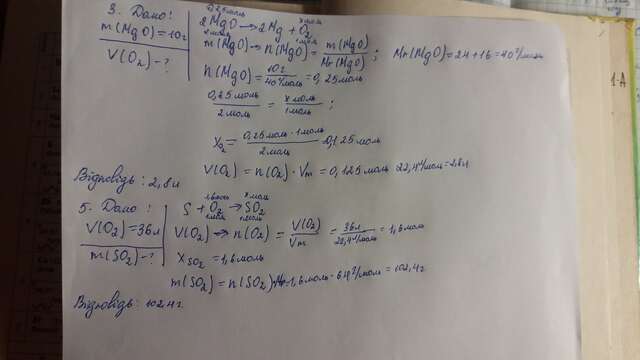 3. Дано:
m(MgO)=10г
V(O₂)-?
0,25моль x моль
2MgO → 2Mg + O₂
2моль 1моль
n(MgO) → n(MgO) = m(MgO) / Mr(MgO) ; Mr(MgO)=24+16=40г/моль
n(MgO) = 10г / 40г/моль = 0,25моль
0,25моль / 2моль = x моль / 1моль ;
x O₂ = 0,25моль·1моль / 2моль = 0,125моль
V(O₂) = n(O₂)·Vm = 0,125моль·22,4л/моль=2,8л
Відповідь: 2,8л
5. Дано:
V(O₂)=36л
m(SO₂)-?
1,6моль x моль
S + O₂ → SO₂
1моль 1моль
V(O₂) → n(O₂) = V(O₂) / Vm = 36л / 22,4л/моль = 1,6моль
x SO₂ = 1,6моль
m(SO₂) = n(SO₂)·M=1,6моль·64г/моль = 102,4г
Відповідь: 102,4г